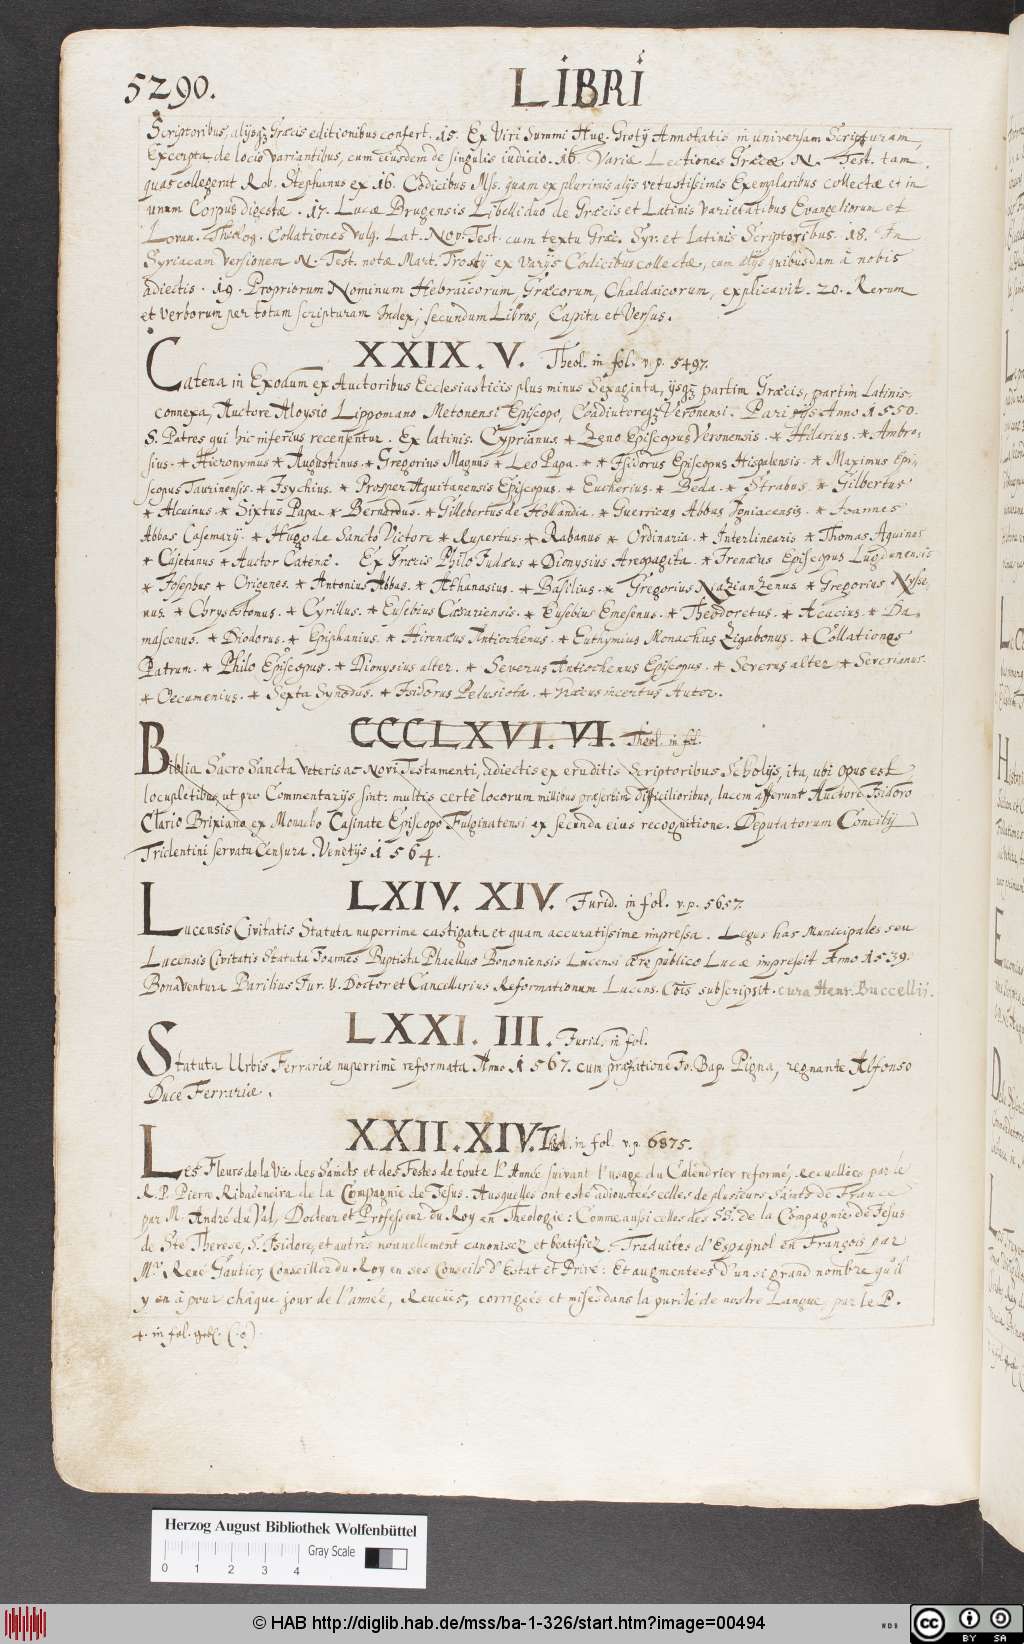 5290. LIBRI
Scriptoribus, alijsq; Græcis editionibus confert. 15. Ex Viri Summi Hug. Grotij Annotatis in universam Scripturam,
Excerpta de locis variantibus, cum eiusdem de singulis iudicio. 16. Variæ Lectiones Græcæ N. Test. tam
quas collegerat Rob. Stephanus ex 16. Codicibus Mss. quam ex plurimis alijs vetustissimis Exemplaribus collectæ et in
unum Corpus Digestæ. 17. Lucæ Brugensis Libelli duo de Græcis et Latinis varietatibus Evangeliorum et
Lovan. Theolog. Collationes Vulg. Lat. Nov. Test. cum textu Græc. Syr. et Latinis Scriptoribus. 18. In
Syriacam Versionem N. Test. notæ Mart. Trostij ex varijs Codicibus collectæ, cum alijs quibusdam à nobis
adiectis. 19. Propriorum Nominum Hebraicorum, Græcorum, Chaldaicorum, explicavit. 20. Rerum
et verborum per totam scripturam Index, secundum Libros, Capita et Versus.
XXIX. V. Theol. in fol. v. p. 5497.
Catena in Exodum ex Auctoribus Ecclesiasticis plus minus Sexaginta, ijsq; partim Græcis, partim Latinis
connexa, Auctore Aloysio Lippomano Metonensi Episcopo, Coadiutoreq; Veronensi. Parisijs Anno 1550.
S. Patres qui hic inferius recensentur. Ex latinis. Cyprianus * Zeno Episcopus Veronensis. * Hilarius. * Ambro,
sius. * Hieronymus * Augustinus. * Gregorius Magnus * Leo Papa. * * Isidorus Episcopus Hispalensis. * Maximus Epi,
scopus Taurinensis. * Isychius. * Prosper Aquitanensis Episcopus. * Eucherius. * Beda. * Strabus. * Gilbertus
* Alcuinus. * Sixtus Papa. * Bernardus. * Gillebertus de Hollandia. * Guerricus Abbas Igniacensis. * Joannes
Abbas Casemarij. * Hugo de Sancto Victore * Rupertus. * Rabanus * Ordinaria. * Interlinearis * Thomas Aquinas
* Cajetanus * Auctor Catenæ. Ex Græcis Philo Judæus * Dionysius Areopagita. * Irenæus Episcopus Lugdunensis
* Josephus * Origenes. * Antonius Abbas. * Athanasius. * Basilius. * Gregorius Nazianzenus * Gregorius Nysse,
nus. * Chrysostomus. * Cyrillus. * Eusebius Cæsariensis. * Eusebius Emesenus. * Theodoretus. * Acacius. * Da,
mascenus. * Diodorus. * Epiphanius. * Hirenæus Antiochenus. * Euthymius Monachus Zigabonus. * Collationes
Patrum. * Philo Episcopus. * Dionysius alter. * Severus Antiochenus Episcopus. * Severus alter * Severianus.
* Oecumenius. * Sexta Synodus. * Isidorus Pelusiota. * incertus Autor.
CCCLXVI. VI. Theol. in fol.
Biblia Sacro Sancta Veteris ac Novi Testamenti, adiectis ex eruditis Scriptoribus Scholijs, ita, ubi opus est
locupletibus, ut pro Commentarijs sint: multis certè locorum millibus præsertim difficilioribus, lucem afferunt Auctore Isidoro
Clario Brixiano ex Monacho Casinate Episcopo Fulginatensi ex secunda eius recognitione. Deputatorum Concilij
Tridentini servata Censura. Venetijs 1564.
LXIV. XIV. Jurid. in fol. v. p. 5657.
Lucensis Civitatis Statuta nuperrime castigata et quam accuratissime impressa. Leges has Municipales seu
Lucensis Civitatis Statuta Joannes Baptista Phaellus Bononiensis Lucensi ære publico Lucæ impressit Anno 1539.
Bonaventura Barilius Jur. V. Doctor et Cancellarius Reformationum Lucens. Cois subscripsit. cura Henr. Buccellij.
LXXI. III. Jurid. in fol.
Statuta Urbis Ferrariæ nuperrimè reformata Anno 1567. cum præfatione Jo. Bap. Pigna, regnante Alfonso
Duce Ferrariæ.
XXII. XIV. in fol v. p. 6875.
Les Fleurs de la Vie des Saincts et des Festes de toute L'Année suivant l'usage du Calendrier reformé, recuellies par le
R. P. Pierre Ribadeneira de la Compagnie de Jesus. Ausquelles ont esté adioustées celles de plusieurs Saints de France
par M. André du Val, Docteur et Professeur du Roy en Theologie: Comme aussi celles des SS. de la Compagnie de Jesus
de Ste Therese, S. Isidore, et autres nouvellement canonisez et beatifiez. Traduites d'Espagnol en François par
Mr. René Gautier, Conseiller du Roy en ses Conseils d'Estat et Privé: Et augmentees d'un si grand nombre qu'il
y en à pour châque jour de l'année, Reveües, corrigées et mises dans la pureté de nostre Langue, par le P.
4. in fol.
Herzog August Bibliothek Wolfenbüttel
Gray Scale
0 1 2 3 4
© HAB http://diglib.hab.de/mss/ba-1-326/start.htm?image=00494
WDB
cc BY SA